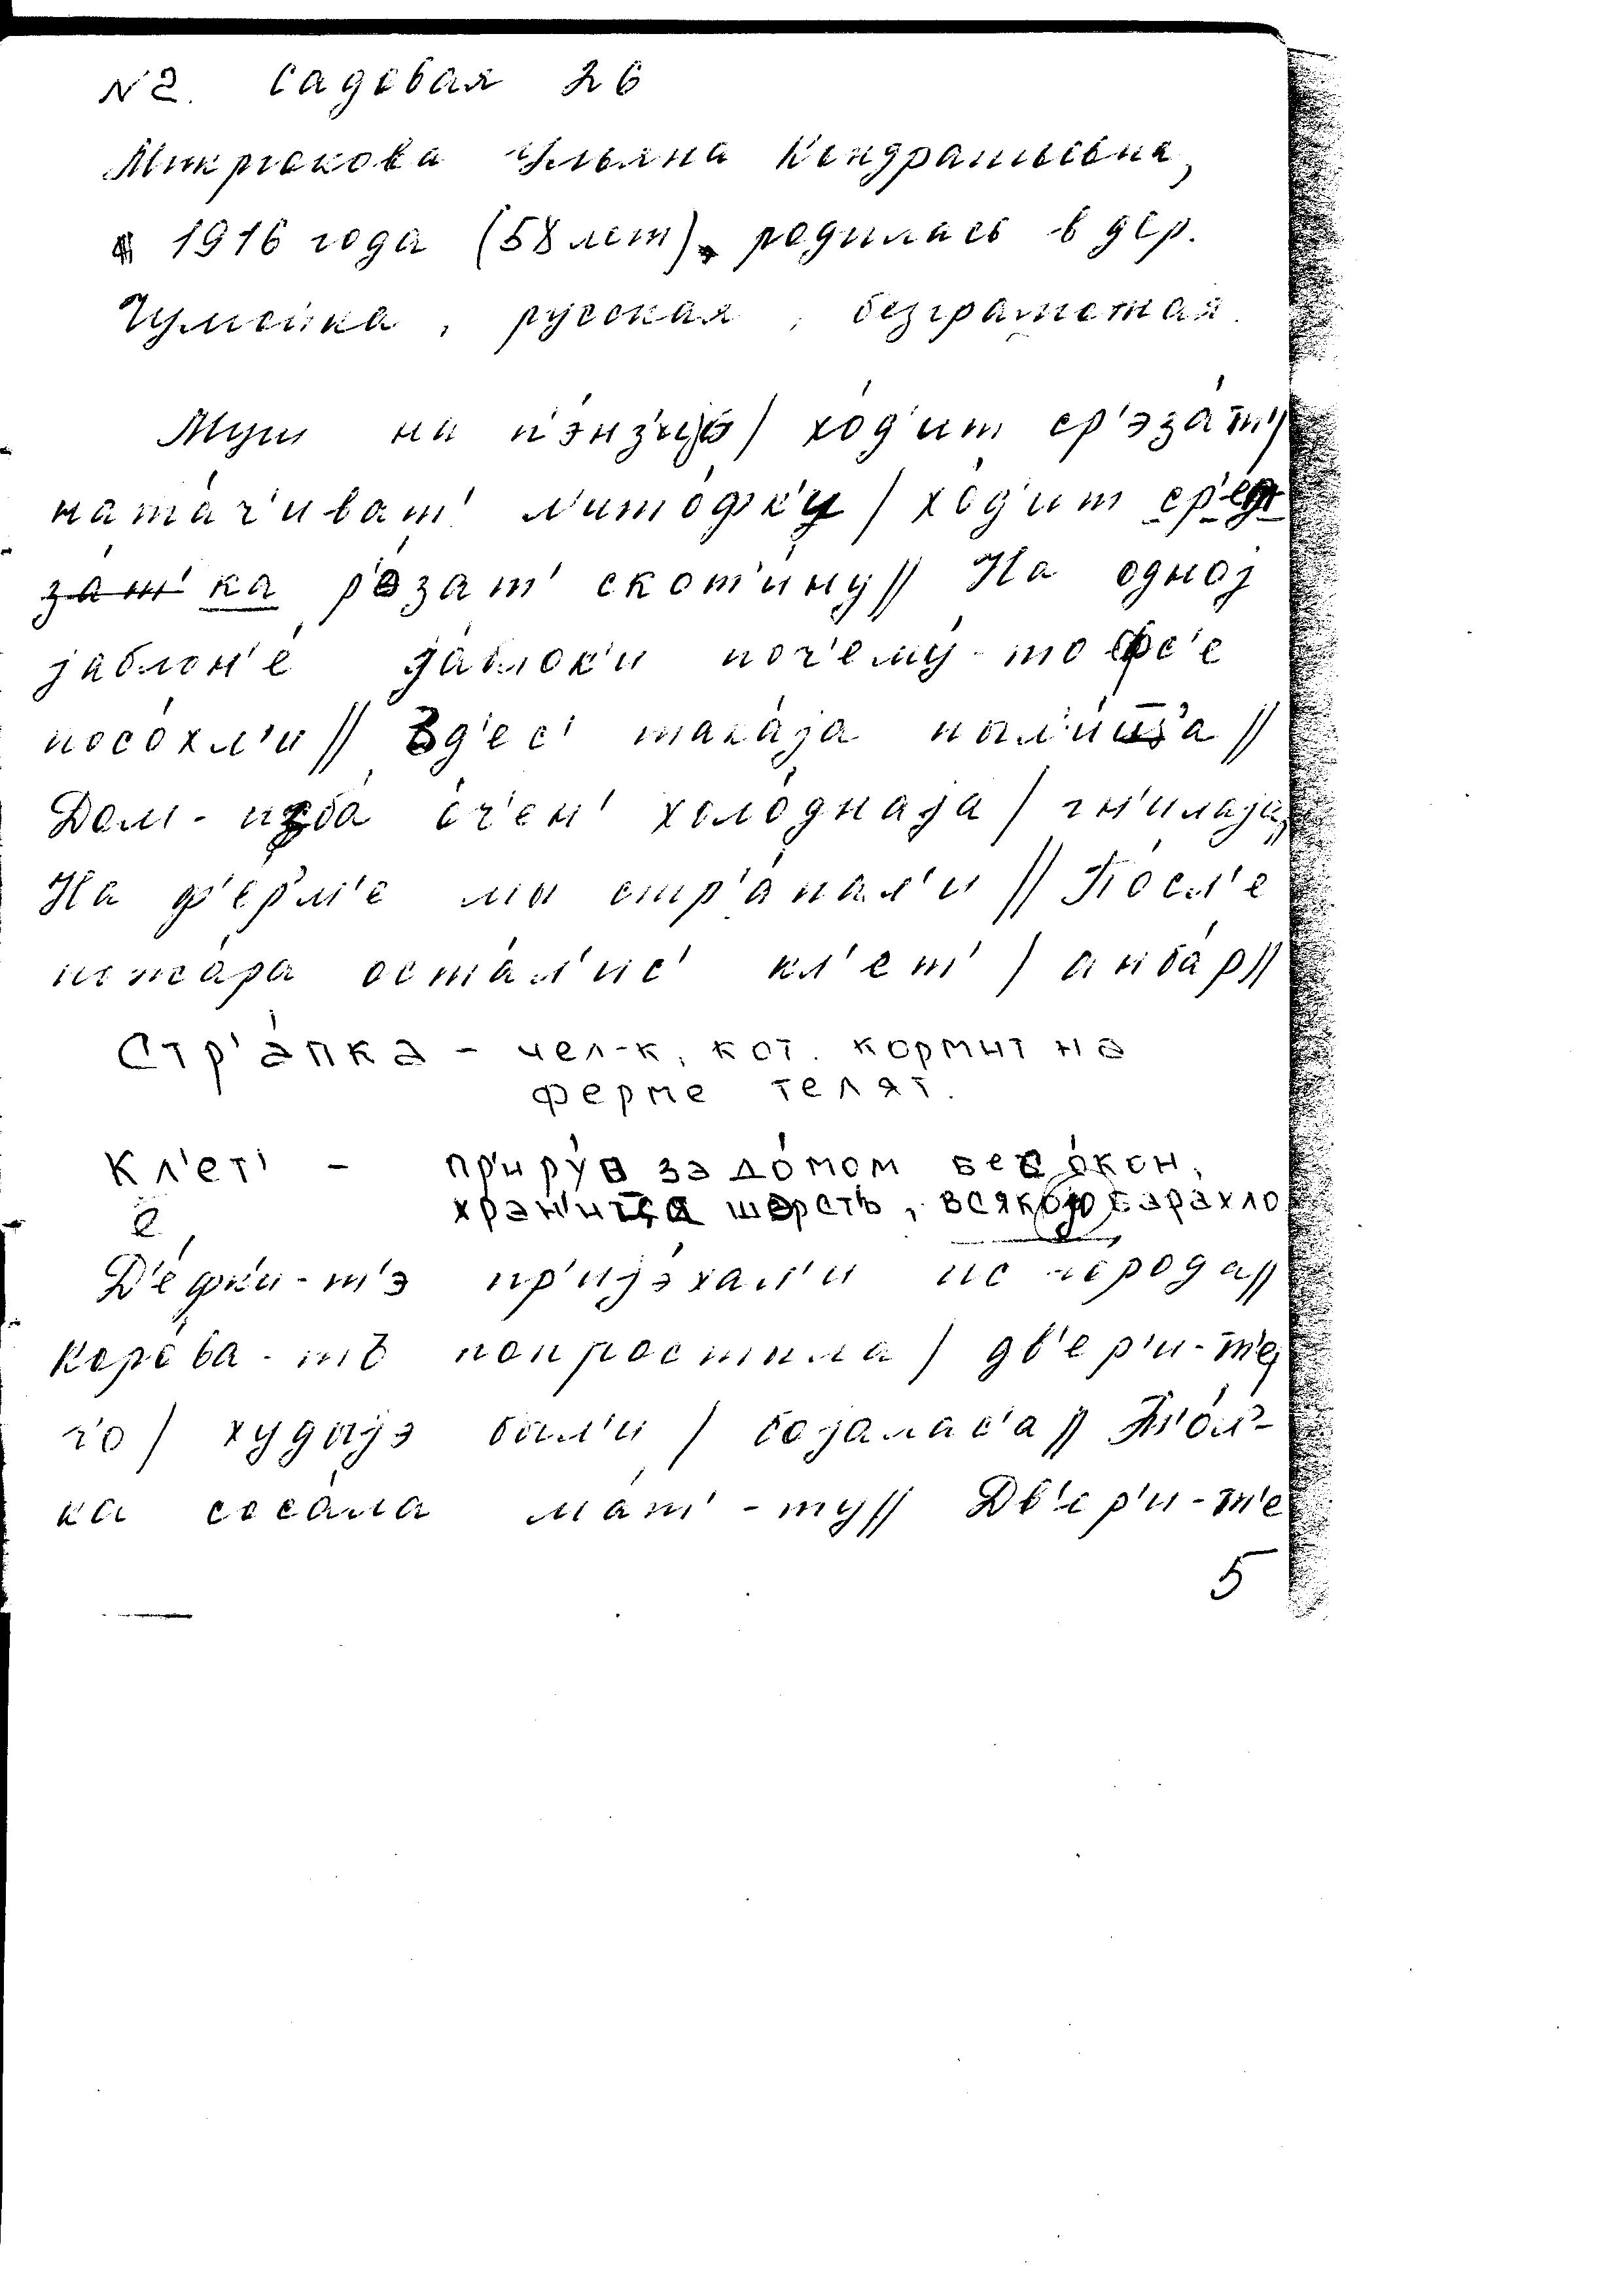 N2. Садовая 26
Микрюкова Ульяна Кондратьевна,
1916 года (58 лет), родилась в дер.
Чумойка, русская, безграмотная.
Муш на п'э́нз'ијо / хо́д'ит ср'эза́т' /
ната́ч'иват' л'ито́фк'и / хо́д'ит ср'ед
за́т' ка р'э́зат' скот'и́ну // На одној
јаблон'е́ јáблок'и поч'ему́-то фс'е
посо́хл'и // Зд'ес' така́ја пыл'и́шша //
Дом-изба́ о́ч'ен' холо́днаја / гн'илаја //
На ф'е́рм'е мы стр'а́пал'и // По́сл'е
пожа́ра оста́л'ис' кл'ет' / анба́р //
Стр'а́пка - чел-к, кот. кормит на
ферме телят.
Кл'ет' - пр'иру́в за до́мом бес о́кон,
хран'итса шэрсть, всякою барахло
е
Д'е́фк'и-т'э пр'ијэ́хал'и ис города //
коро́ва-тъ попростыла / дв'ер'и-т'е
го / худыјэ был'и / бојалас'а // Т'о́л'-
ка соса́ла ма́т'-ту // Дв'ер'и-т'е
5